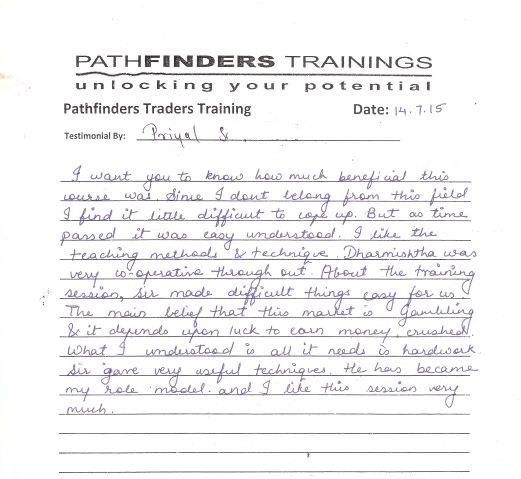 PATHFINDERS TRAININGS
unlocking your potential
Pathfinders Traders Training Date: 14.7.15
Testimonial By: Priyal S.
I want you to know how much beneficial this
course was. Since I dont belong from this field
I find it little difficult to cope up. But as time
passed it was easy understood. I like the
teaching methods & technique. Dharmishtha was
very co-operative through out. About the training
session, sir made difficult things easy for us.
The main belief that this market is Gambling
& it depends upon luck to earn money, crushed.
What I understood is all it needs is hardwork.
Sir gave very useful techniques. He has became
my role model. and I like this session very
much.